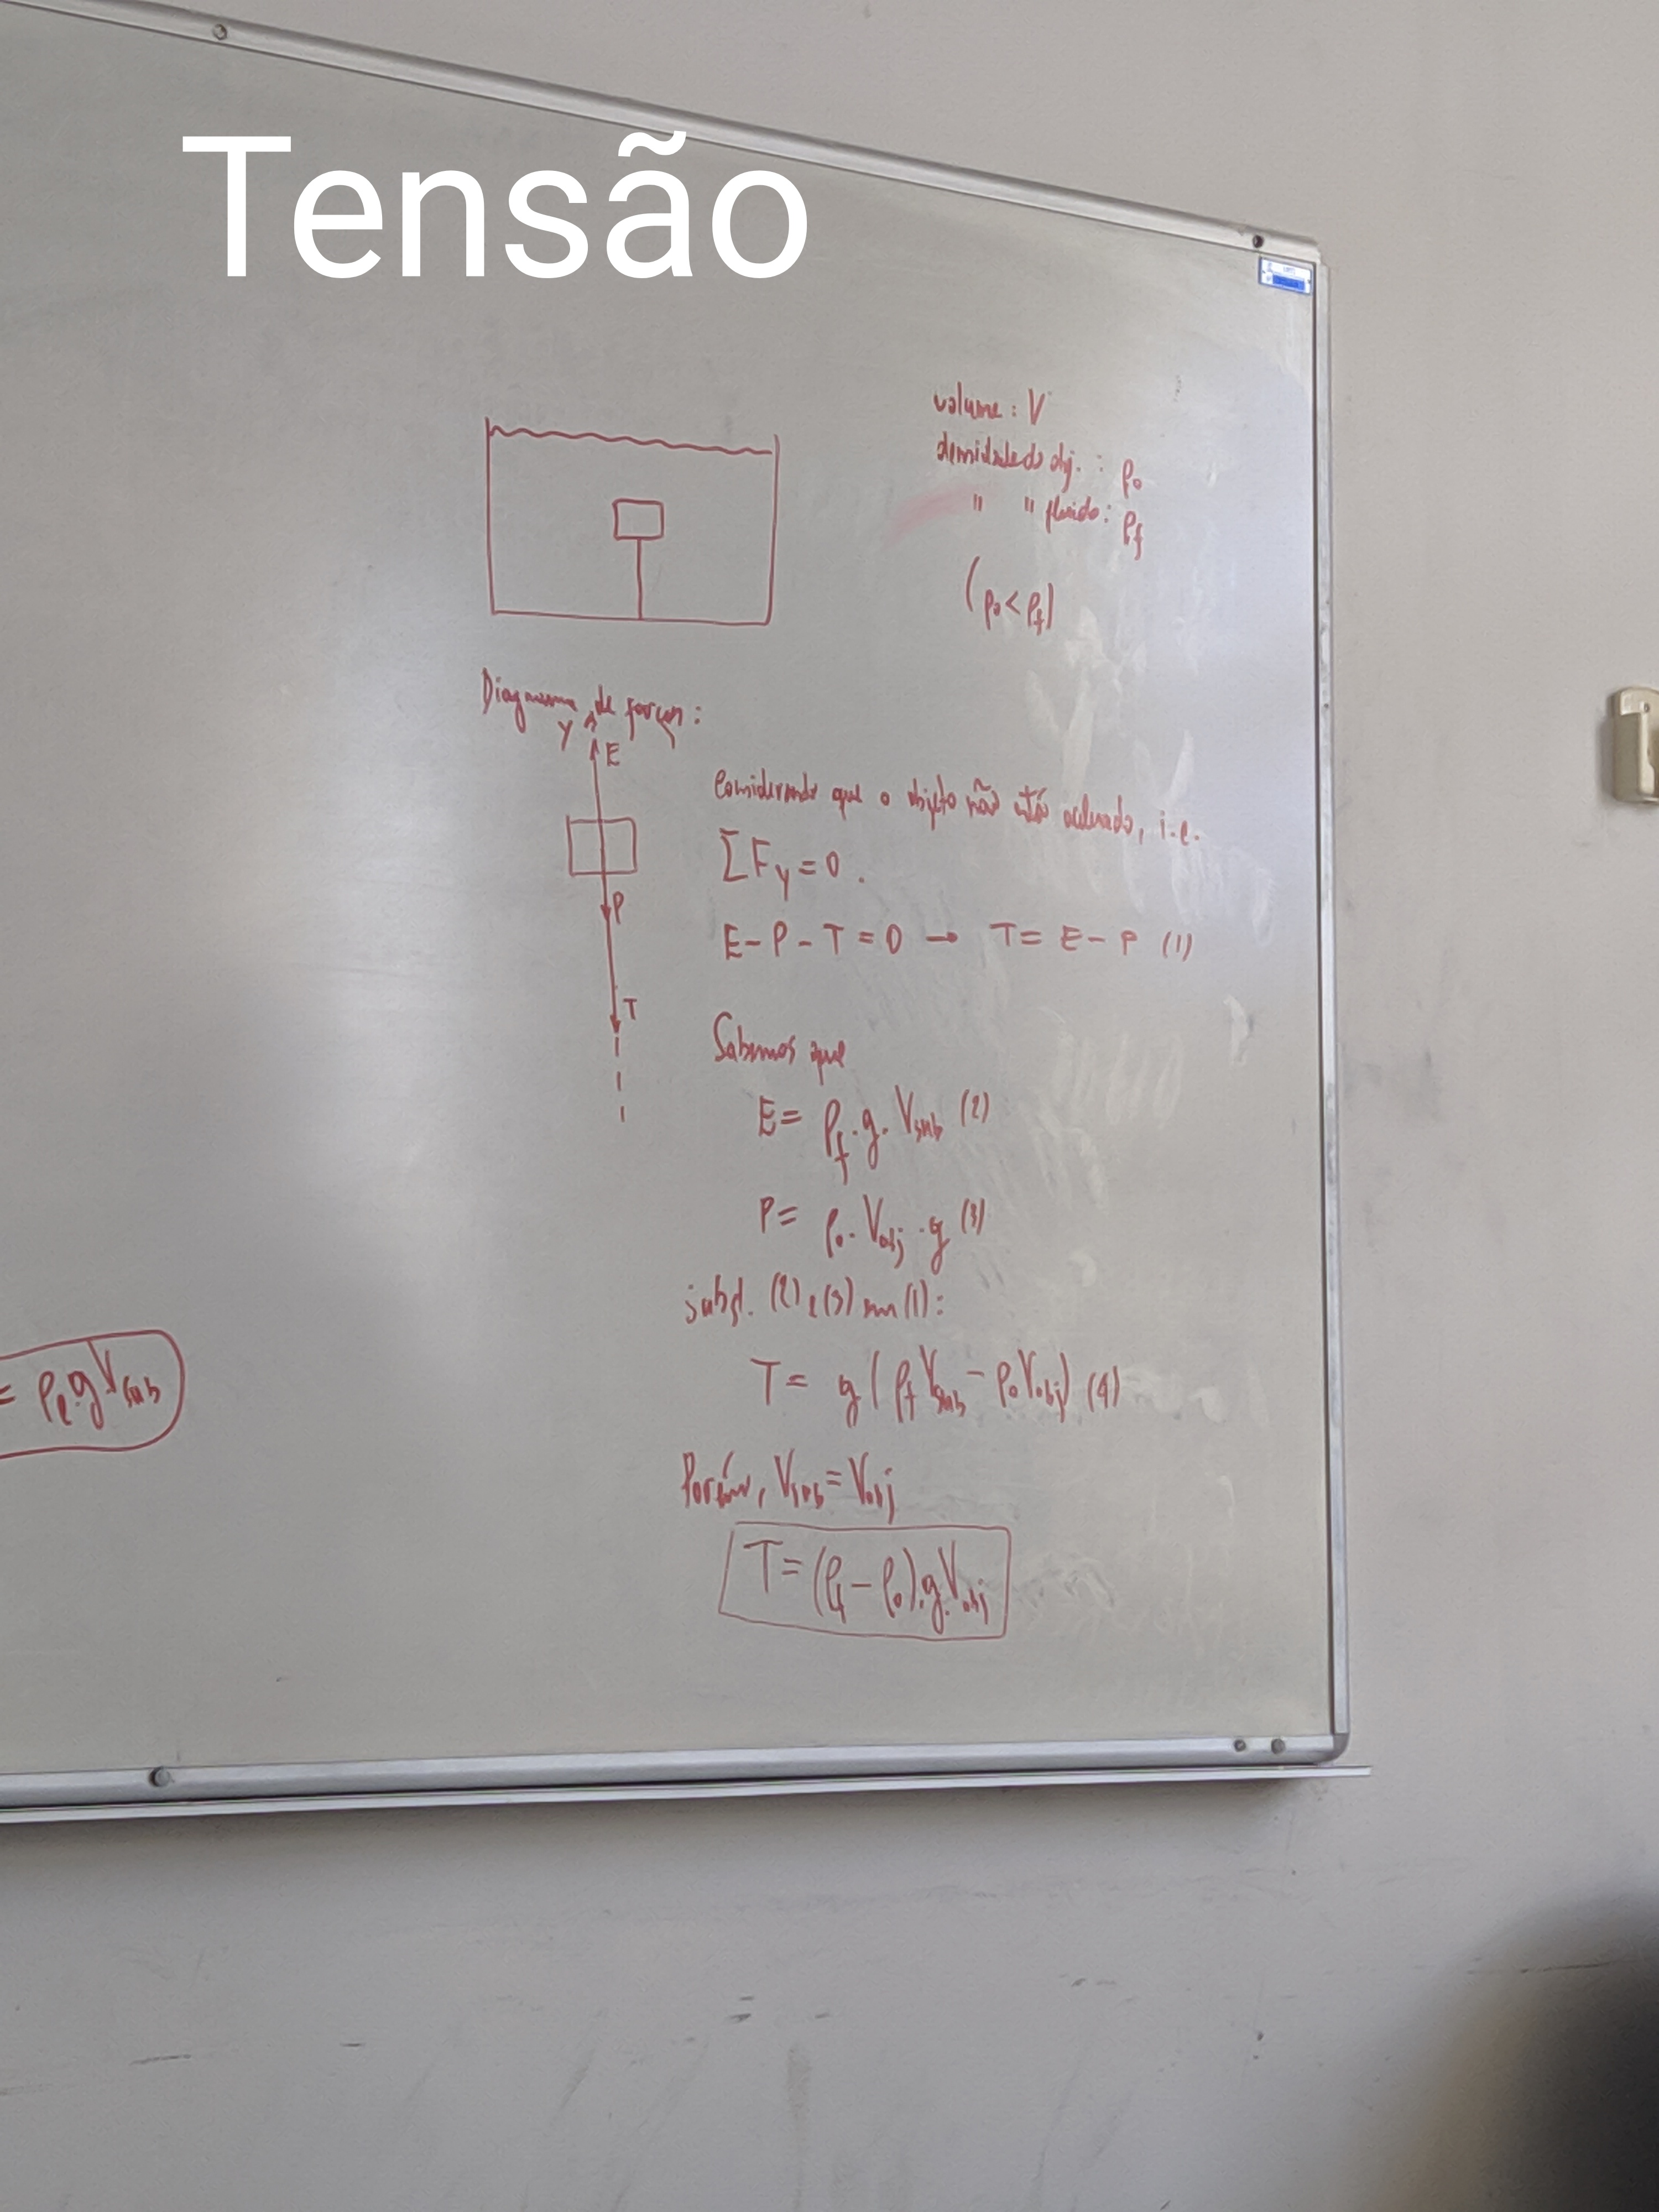 Tensão
volume: V
densidade do obj. : ρ₀
" " fluido: ρf
(ρ₀ < ρf)
Diagrama de forças:
y
E
P
T
Considerando que o objeto não está acelerado, i.e.
ΣFy = 0.
E - P - T = 0 → T = E - P (1)
Sabemos que
E = ρf . g . Vsub (2)
P = ρ₀ . Vobj . g (3)
subst. (2) e (3) em (1):
T = g (ρf Vsub - ρ₀ Vobj) (4)
Porém, Vsub = Vobj
T = (ρf - ρ₀) . g . Vobj
= ρl . g Vsub